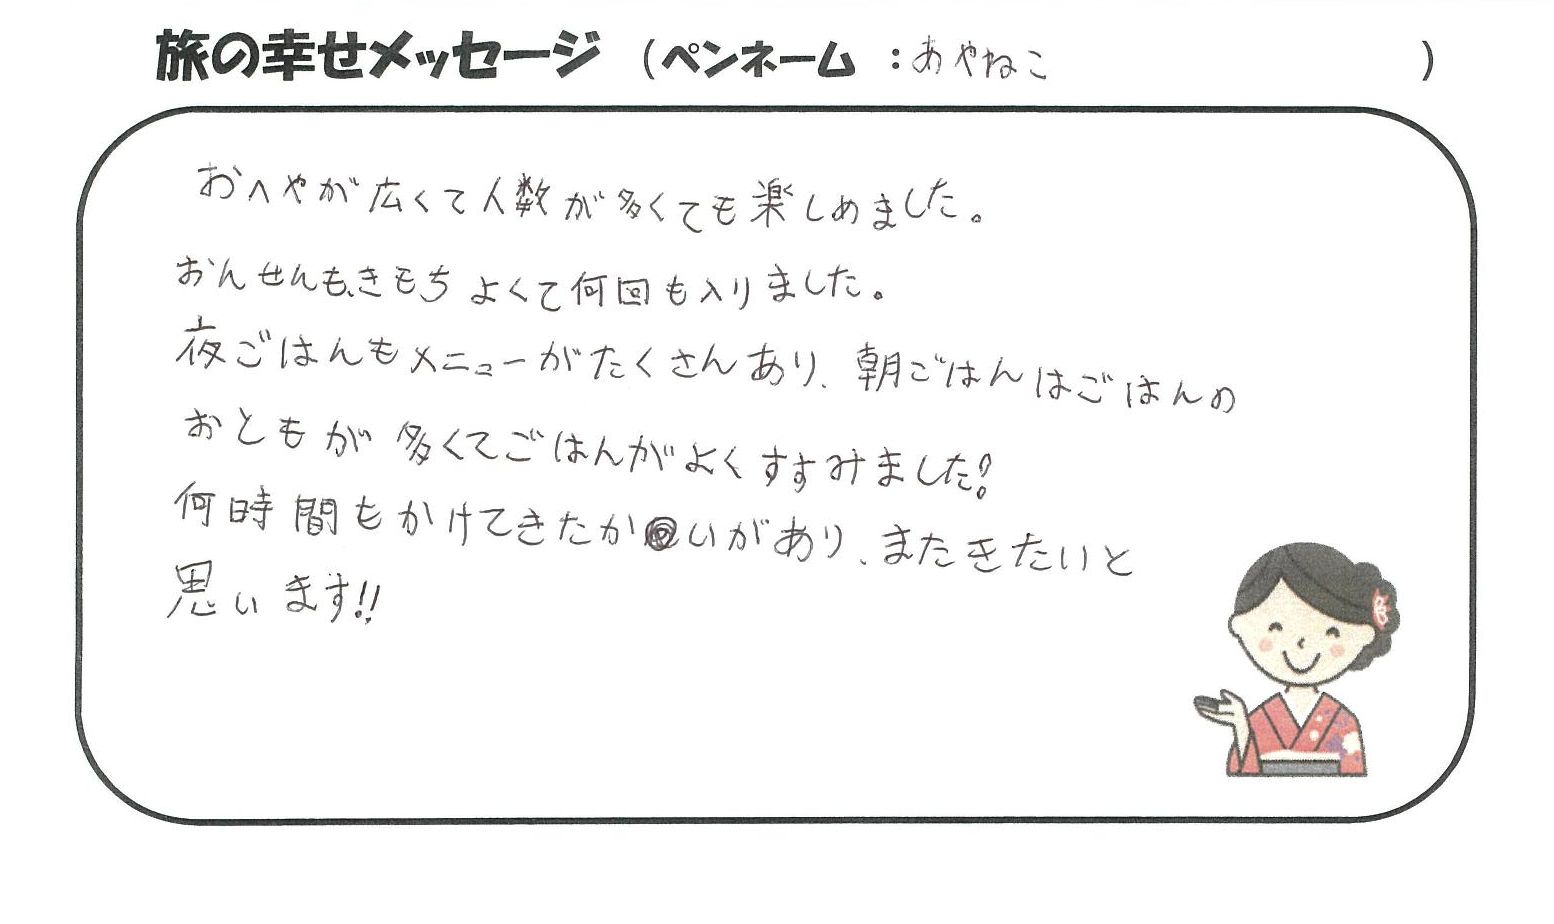 旅の幸せメッセージ (ペンネーム :あやねこ )
おへやが広くて人数が多くても楽しめました。
おんせんも、きもちよくて何回も入りました。
夜ごはんもメニューがたくさんあり、朝ごはんはごはんの
おともが多くてごはんがよくすすみました!
何時間もかけてきたかいがあり、またきたいと
思います!!